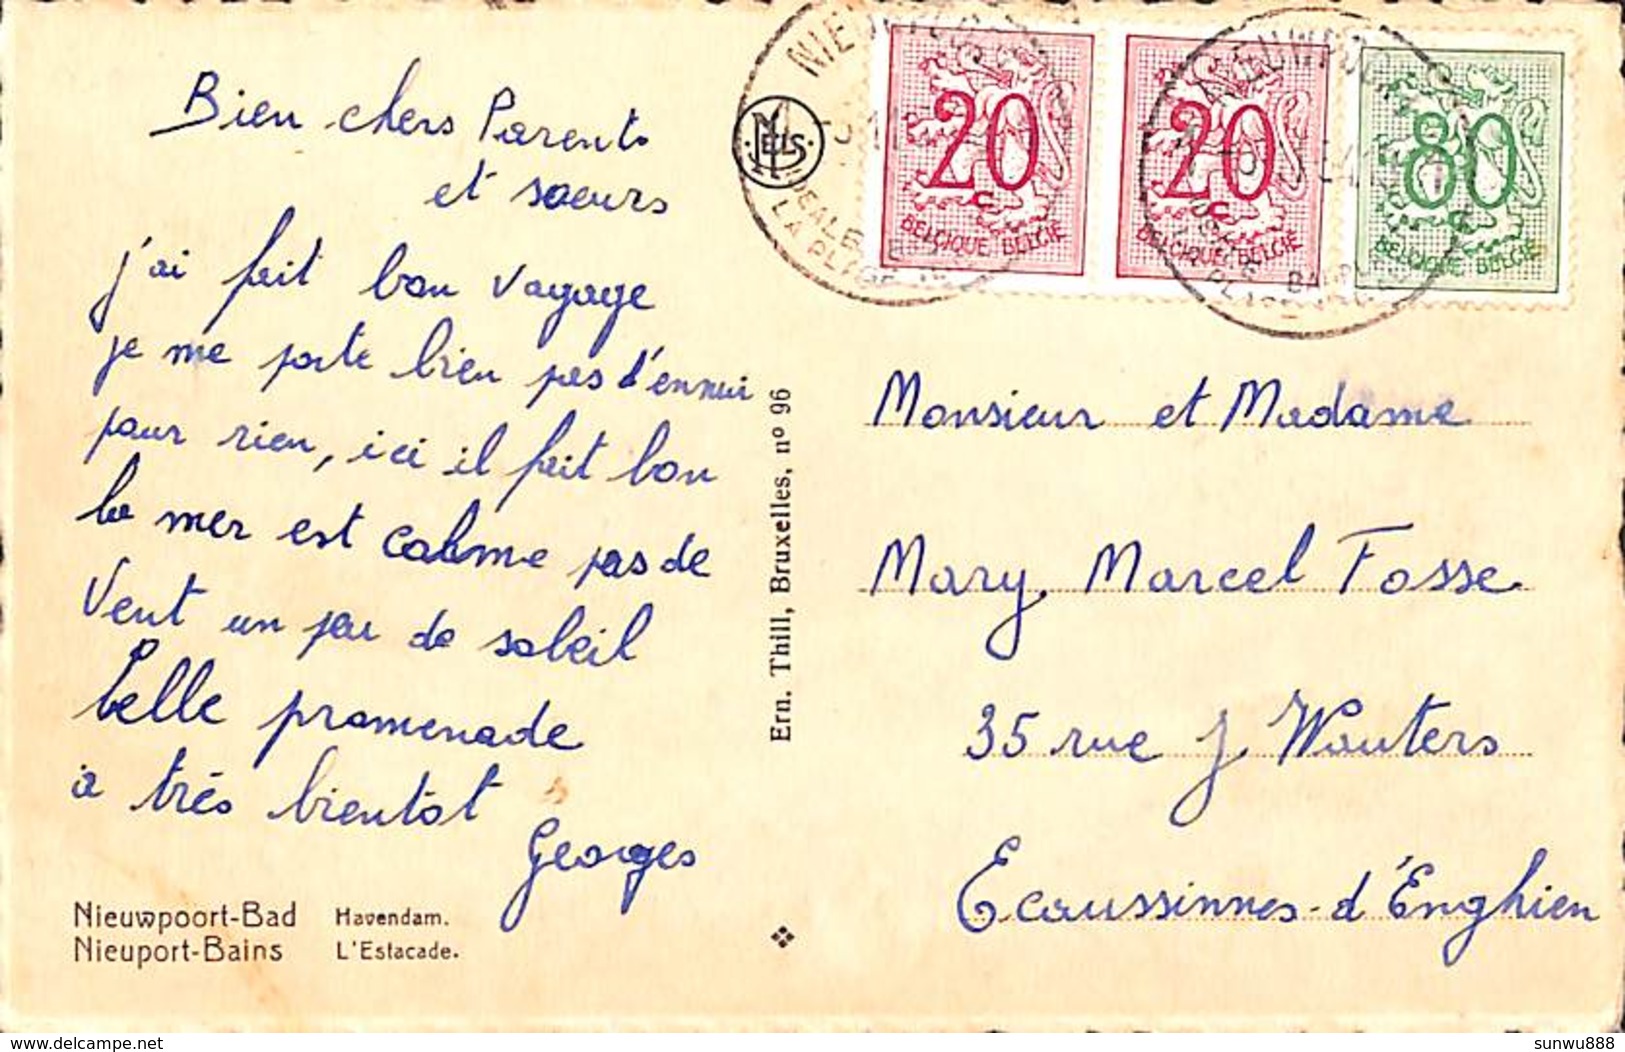 Bien chers Parents
et soeurs
j'ai fait bon voyage
je me porte bien pas d'ennui
pour rien, ici il fait bon
la mer est calme pas de
Vent un peu de soleil
belle promenade
a très bientot
Georges
Nieuwpoort-Bad Havendam.
Nieuport-Bains L'Estacade.
Ern. Thill, Bruxelles, nº 96
NELS
20 c
BELGIQUE BELGIË
20 c
BELGIQUE BELGIË
80 c
BELGIQUE BELGIË
LA PLAGE
Monsieur et Madame
Mary, Marcel Fosse
35 rue J Wauters
Ecaussinnes-d'Enghien
www.delcampe.net
sunwu888